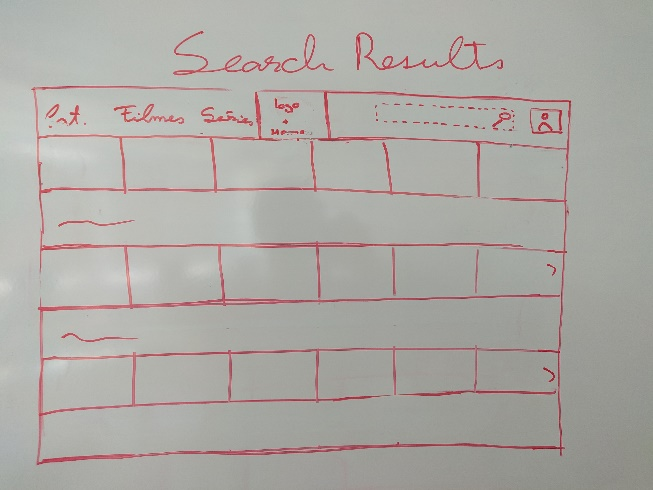 Search Results
Cat. Filmes Séries
logo
+
Home